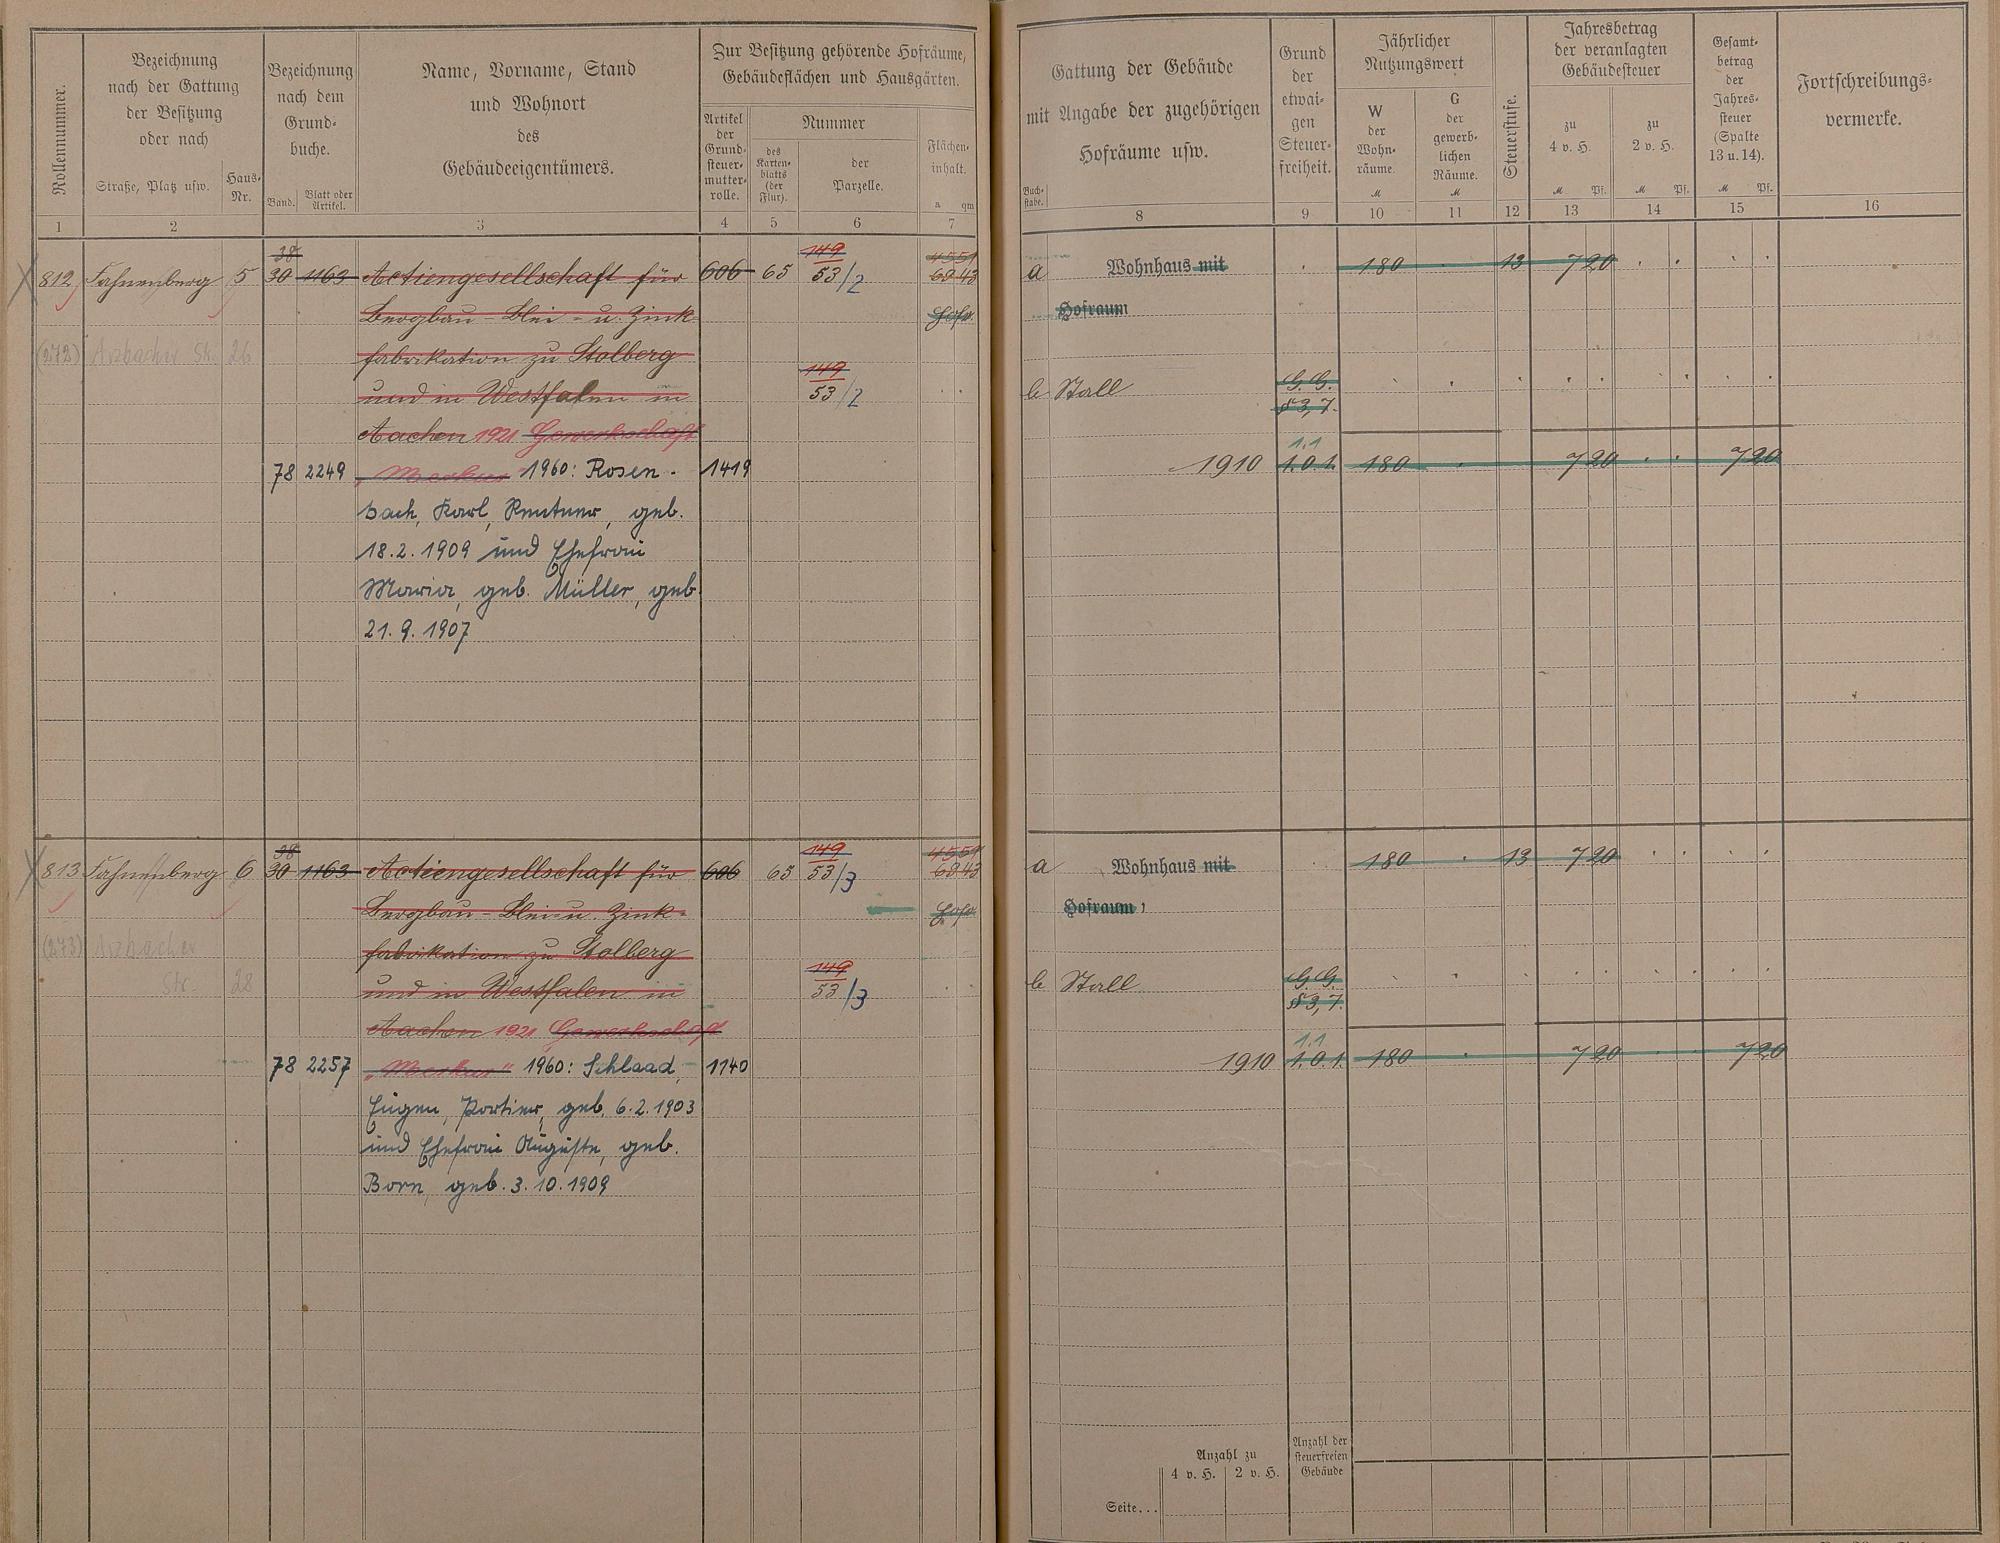 Rollennummer.
Bezeichnung
nach der Gattung
der Besitzung
oder nach
Straße, Platz usw.
Haus-
Nr.
Bezeichnung
nach dem
Grund-
buche.
Band.
Blatt oder
Artikel.
Name, Vorname, Stand
und Wohnort
des
Gebäudeeigentümers.
Zur Besitzung gehörende Hofräume,
Gebäudeflächen und Hausgärten.
Artikel
der
Grund-
steuer-
mutter-
rolle.
Nummer
des
Karten-
blatts
(der
Flur).
der
Parzelle.
Flächen-
inhalt.
a qm
1 2 3 4 5 6 7
38
149
4551
812 Fahnenberg 5 30 1163 Actiengesellschaft für 606 65 53/2 6843
Bergbau- Blei- u. Zink- Hofr.
(272) Arzbacher Str. 26 fabrikation zu Stolberg
149
und in Westfalen in 53/2
Aachen 1921 Gewerkschaft
78 2249 "Merkur" 1960: Rosen- 1419
bach, Karl, Rentner, geb.
18.2.1909 und Ehefrau
Maria, geb. Müller, geb.
21.9.1907
38
149
4551
813 Fahnenberg 6 30 1163 Actiengesellschaft für 606 65 53/3 6843
Bergbau- Blei- u. Zink- Hofr.
(273) Arzbacher fabrikation zu Stolberg
149
Str. 28 und in Westfalen in 53/3
Aachen 1921 Gewerkschaft
78 2257 "Merkur" 1960: Schlaad, 1140
Eugen, Portier, geb. 6.2.1903
und Ehefrau Auguste, geb.
Born, geb. 3.10.1909
Buch-
stabe.
Gattung der Gebäude
mit Angabe der zugehörigen
Hofräume usw.
Grund
der
etwai-
gen
Steuer-
freiheit.
Jährlicher
Nutzungswert
W
der
Wohn-
räume.
M
G
der
gewerb-
lichen
Räume.
M
Steuerstufe.
Jahresbetrag
der veranlagten
Gebäudesteuer
zu
4 v. H.
M Pf.
zu
2 v. H.
M Pf.
Gesamt-
betrag
der
Jahres-
steuer
(Spalte
13 u. 14).
M Pf.
Fortschreibungs-
vermerke.
8 9 10 11 12 13 14 15 16
a Wohnhaus mit 180 13 7 20
Hofraum
b Stall G.G.
§3,7.
1.1
1910 1.0.1. 180 7 20 7 20
a Wohnhaus mit 180 13 7 20
Hofraum
b Stall G.G.
§3,7.
1.1
1910 1.0.1. 180 7 20 7 20
Anzahl zu
4 v. H. 2 v. H.
Anzahl der
steuerfreien
Gebäude
Seite...